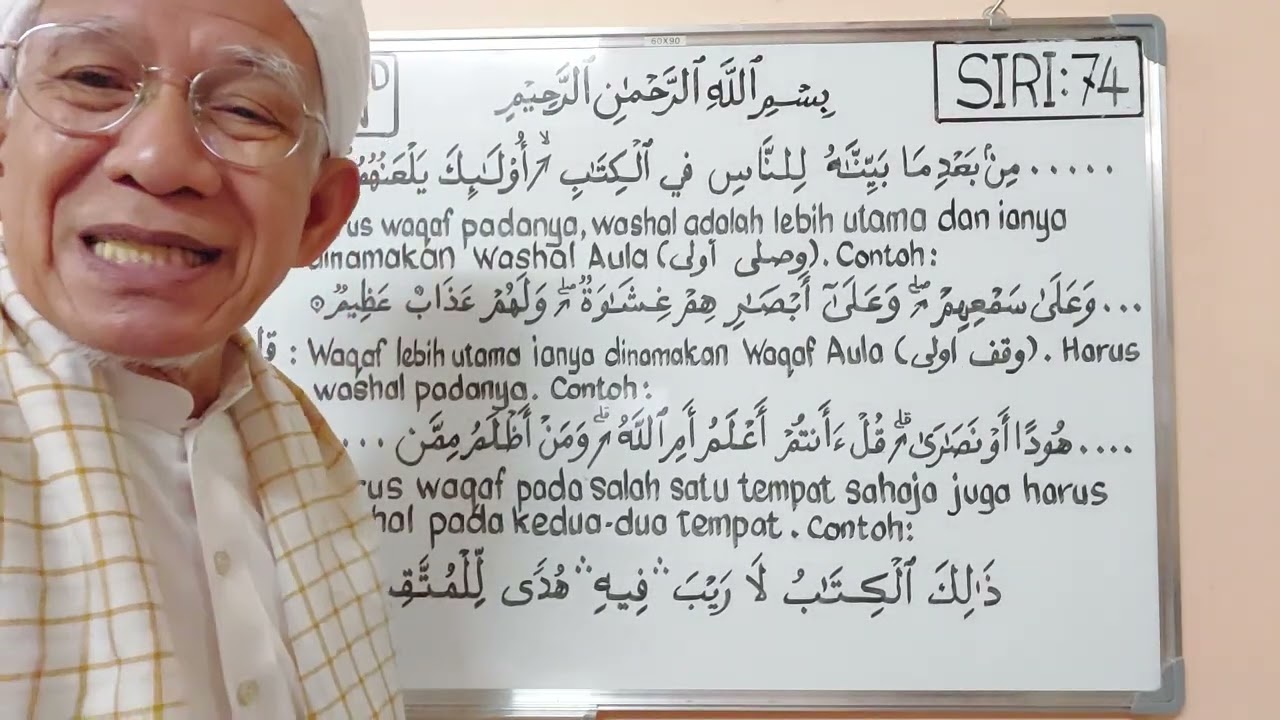 60X90
بِسْمِ ٱللَّهِ ٱلرَّحْمَٰنِ ٱلرَّحِيْمِ
SIRI:74
..... مِنۢ بَعْدِ مَا بَيَّنَّٰهُ لِلنَّاسِ فِي ٱلْكِتَٰبِ ۙ أُوْلَٰٓئِكَ يَلْعَنُهُمُ
waqaf padanya, washal adalah lebih utama dan ianya
dinamakan Washal Aula (وصلى أولى). Contoh:
... وَعَلَىٰ سَمْعِهِمْ ۖ وَعَلَىٰٓ أَبْصَٰرِ هِمْ غِشَٰوَةٌ ۖ وَلَهُمْ عَذَابٌ عَظِيْمٌ
: Waqaf lebih utama ianya dinamakan Waqaf Aula (وقف أولى). Harus
washal padanya. Contoh:
.... هُودًا أَوْ نَصَٰرَىٰ ۗ قُلْ ءَأَنتُمْ أَعْلَمُ أَمِ ٱللَّهُ ۗ وَمَنْ أَظْلَمُ مِمَّن ...
waqaf pada salah satu tempat sahaja juga harus
pada kedua-dua tempat. Contoh:
ذَٰلِكَ ٱلْكِتَٰبُ لَا رَيْبَ ۛ فِيهِ ۛ هُدًى